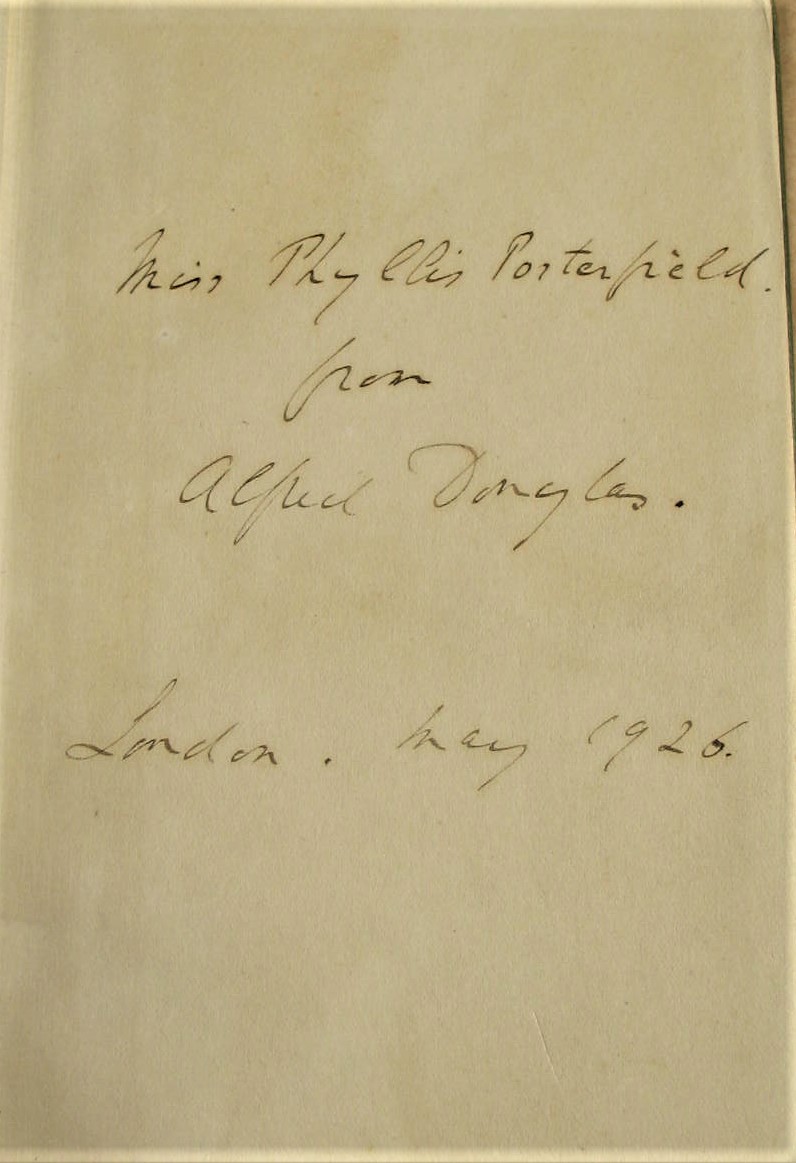 Miss Phyllis Porterfield.
from
Alfred Douglas.
London. May 1926.